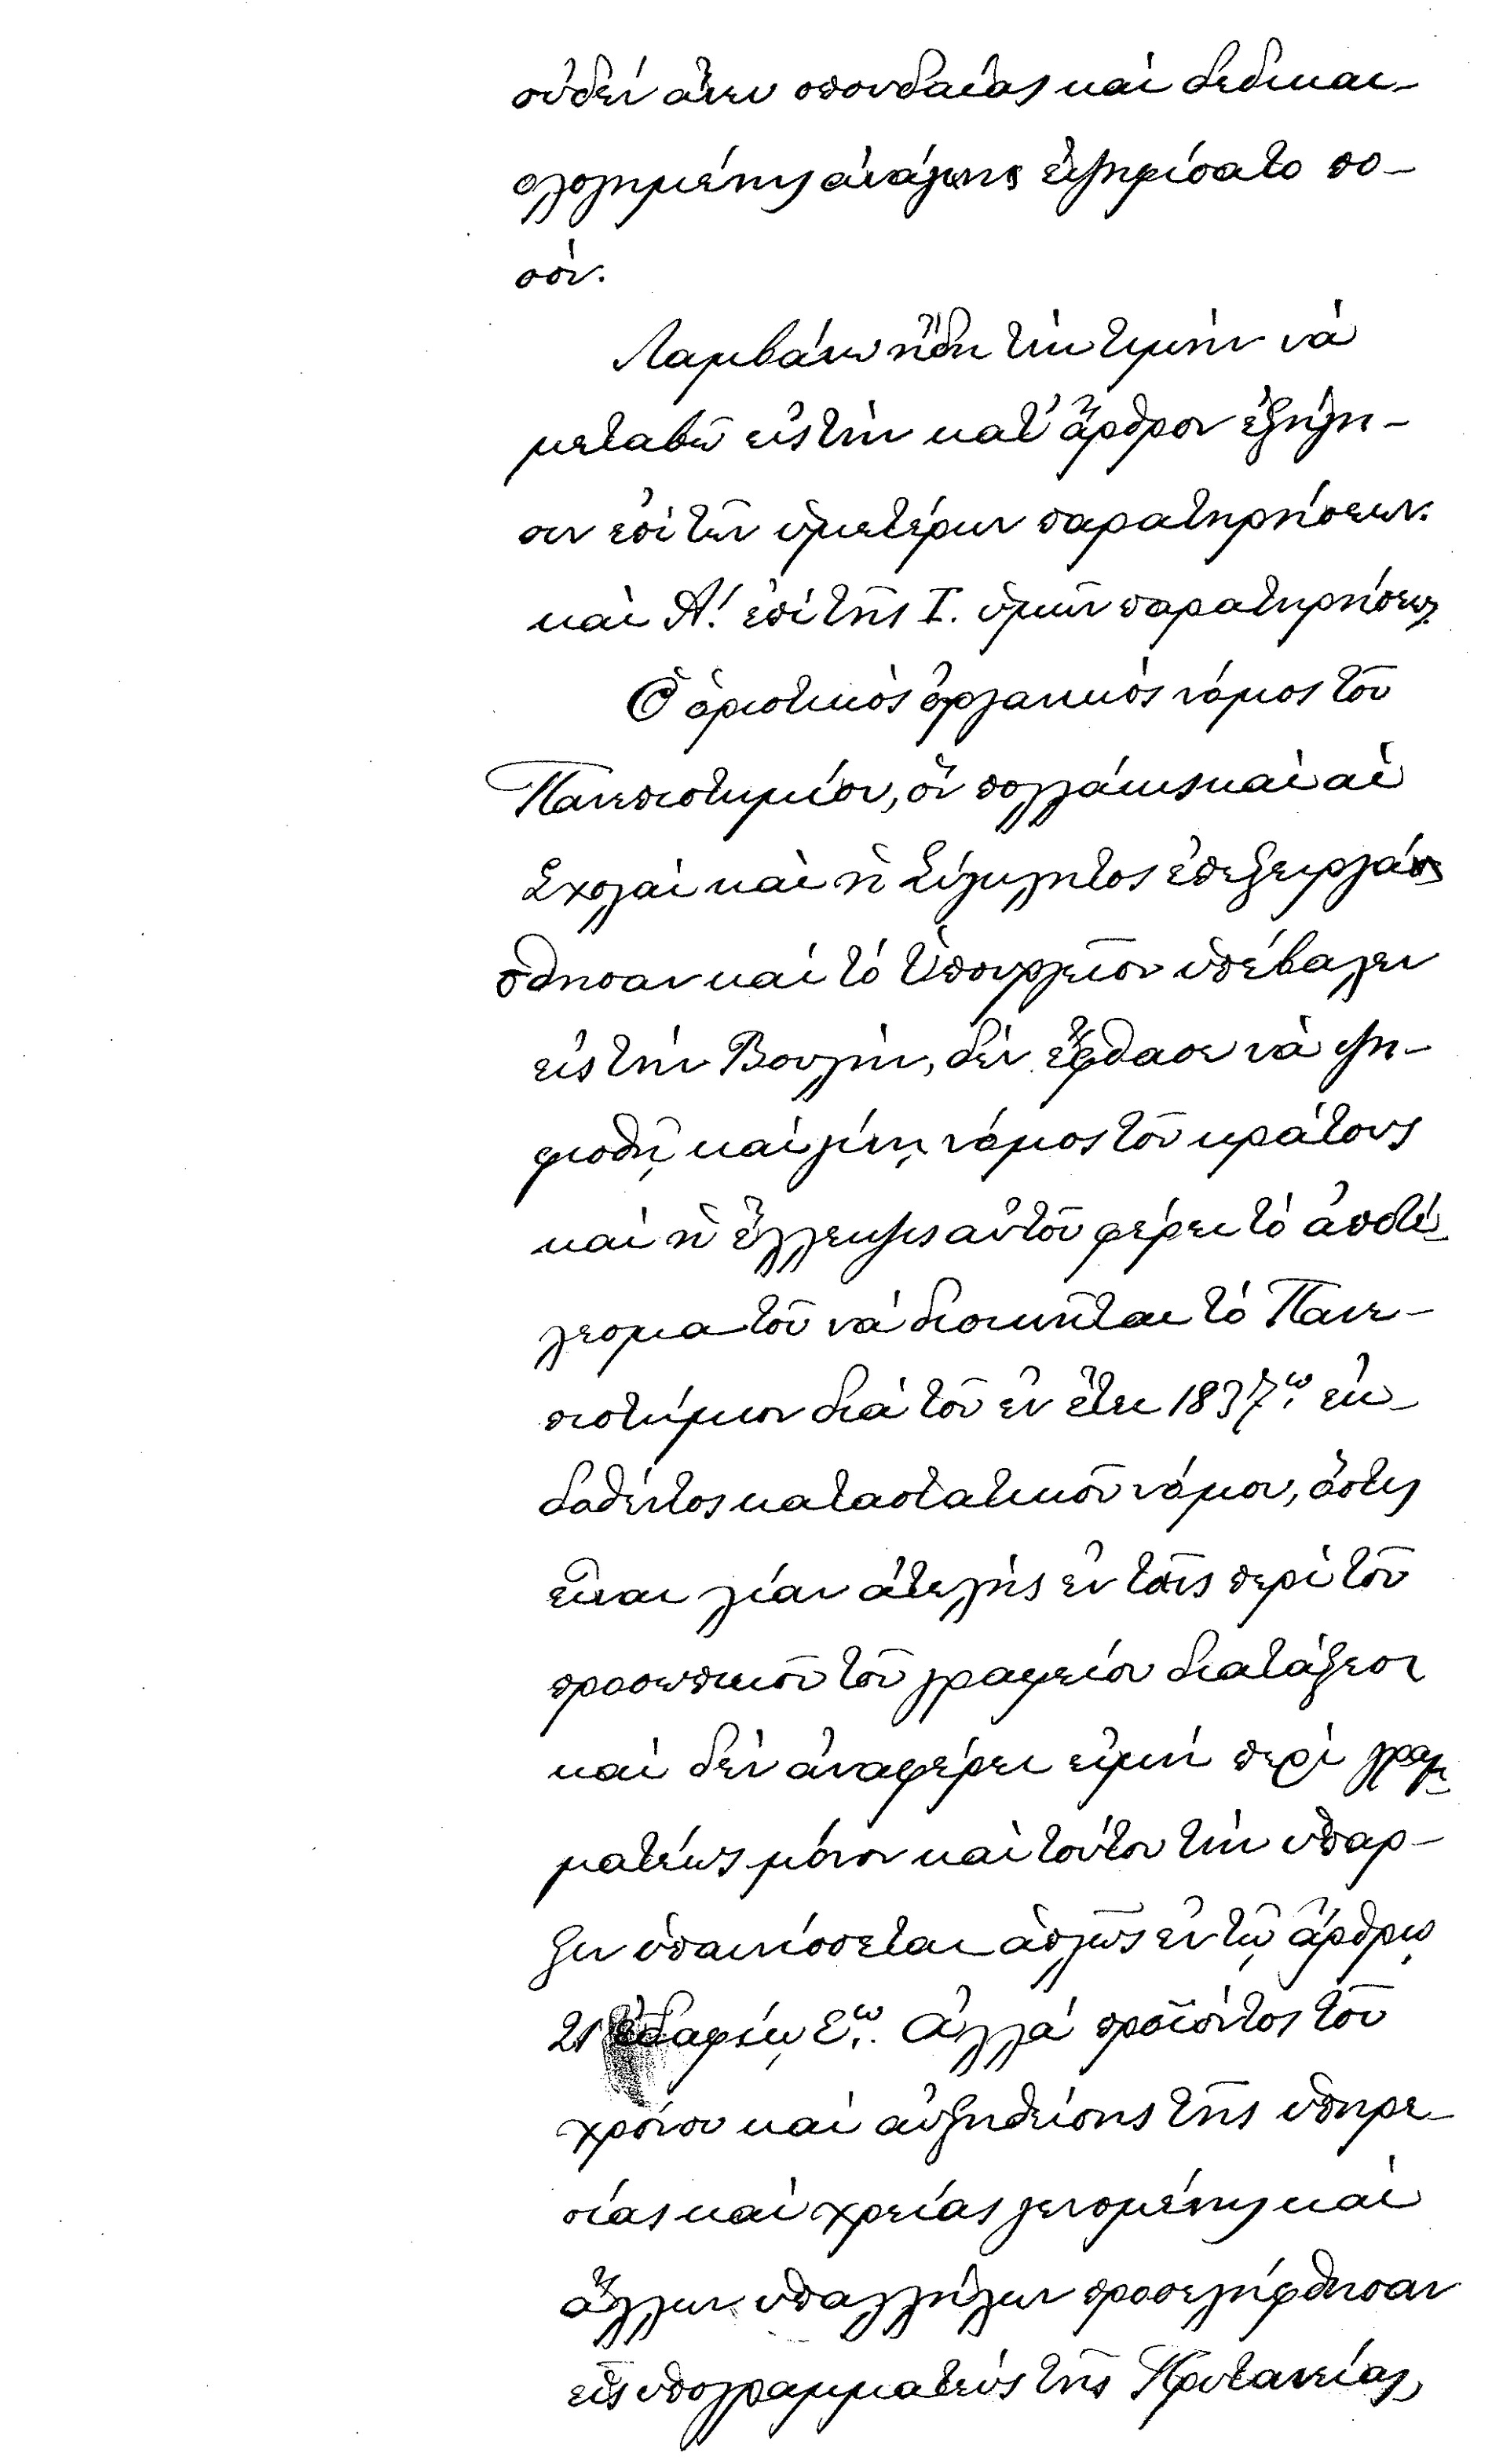 οὐδέν ἄνευ σπουδαίας καὶ δεδικαι-
ολογημένης ἀνάγκης ἐψηφίσατο πο-
σόν.
Λαμβάνω ἤδη τὴν τιμὴν νὰ
μεταβῶ εἰς τὴν κατ' ἄρθρον ἐξήγη-
σιν ἐπὶ τῶν ὑμετέρων παρατηρήσεων.
καὶ Α! ἐπὶ τῆς Ι. ὑμῶν παρατηρήσεως.
Ὁ ὁριστικὸς ὀργανικὸς νόμος τοῦ
Πανεπιστημίου, ὃν πολλάκις καὶ αἱ
Σχολαὶ καὶ ἡ Σύγκλητος ἐπεξειργάσ
σθησαν καὶ τό Ὑπουργεῖον ὑπέβαλεν
εἰς τὴν Βουλήν, δὲν ἔφθασε νὰ ψη-
φισθῇ καὶ γίνῃ νόμος τοῦ κράτους
καὶ ἡ ἔλλειψις αὐτοῦ φέρει τὸ ἀποτέ-
λεσμα τοῦ νὰ διοικῆται τὸ Πανε-
πιστήμιον διὰ τοῦ ἐν ἔτει 1837ῳ ἐκ-
δοθέντος καταστατικοῦ νόμου, ὅστις
εἶναι λίαν ἀτελὴς ἐν ταῖς περὶ τοῦ
προσωπικοῦ τοῦ γραφείου διατάξεσι
καὶ δὲν ἀναφέρει εἰμὴ περὶ γραμ-
ματέως μόνον καὶ τούτου τὴν ὕπαρ-
ξιν ὑπαινίσσεται ἁπλῶς ἐν τῷ ἄρθρῳ
21 ἐδαφίῳ εῳ. Ἀλλὰ προϊόντος τοῦ
χρόνου καὶ αὐξηθείσης τῆς ὑπηρε-
σίας καὶ χρείας γενομένης καὶ
ἄλλων ὑπαλλήλων προσελήφθησαν
εἷς ὑπογραμματεὺς τῆς Πρυτανείας,